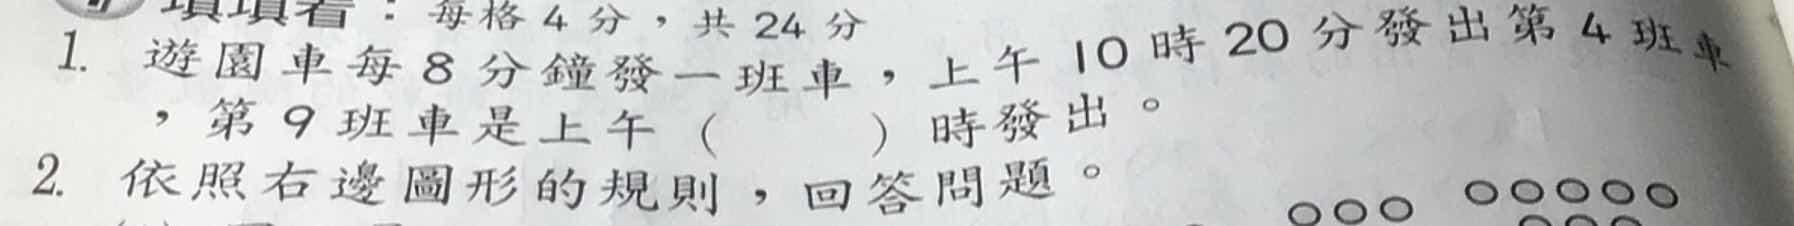 填填看：每格4分，共24分
1. 遊園車每8分鐘發一班車，上午10時20分發出第4班車
，第9班車是上午（　　）時發出。
2. 依照右邊圖形的規則，回答問題。